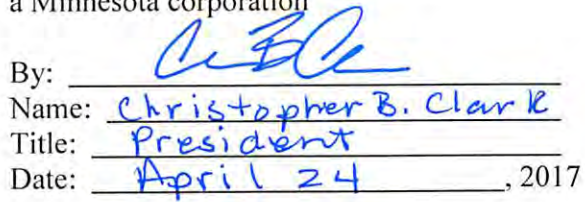 a Minnesota corporation
By:
Name: Christopher B. Clark
Title: President
Date: April 24, 2017